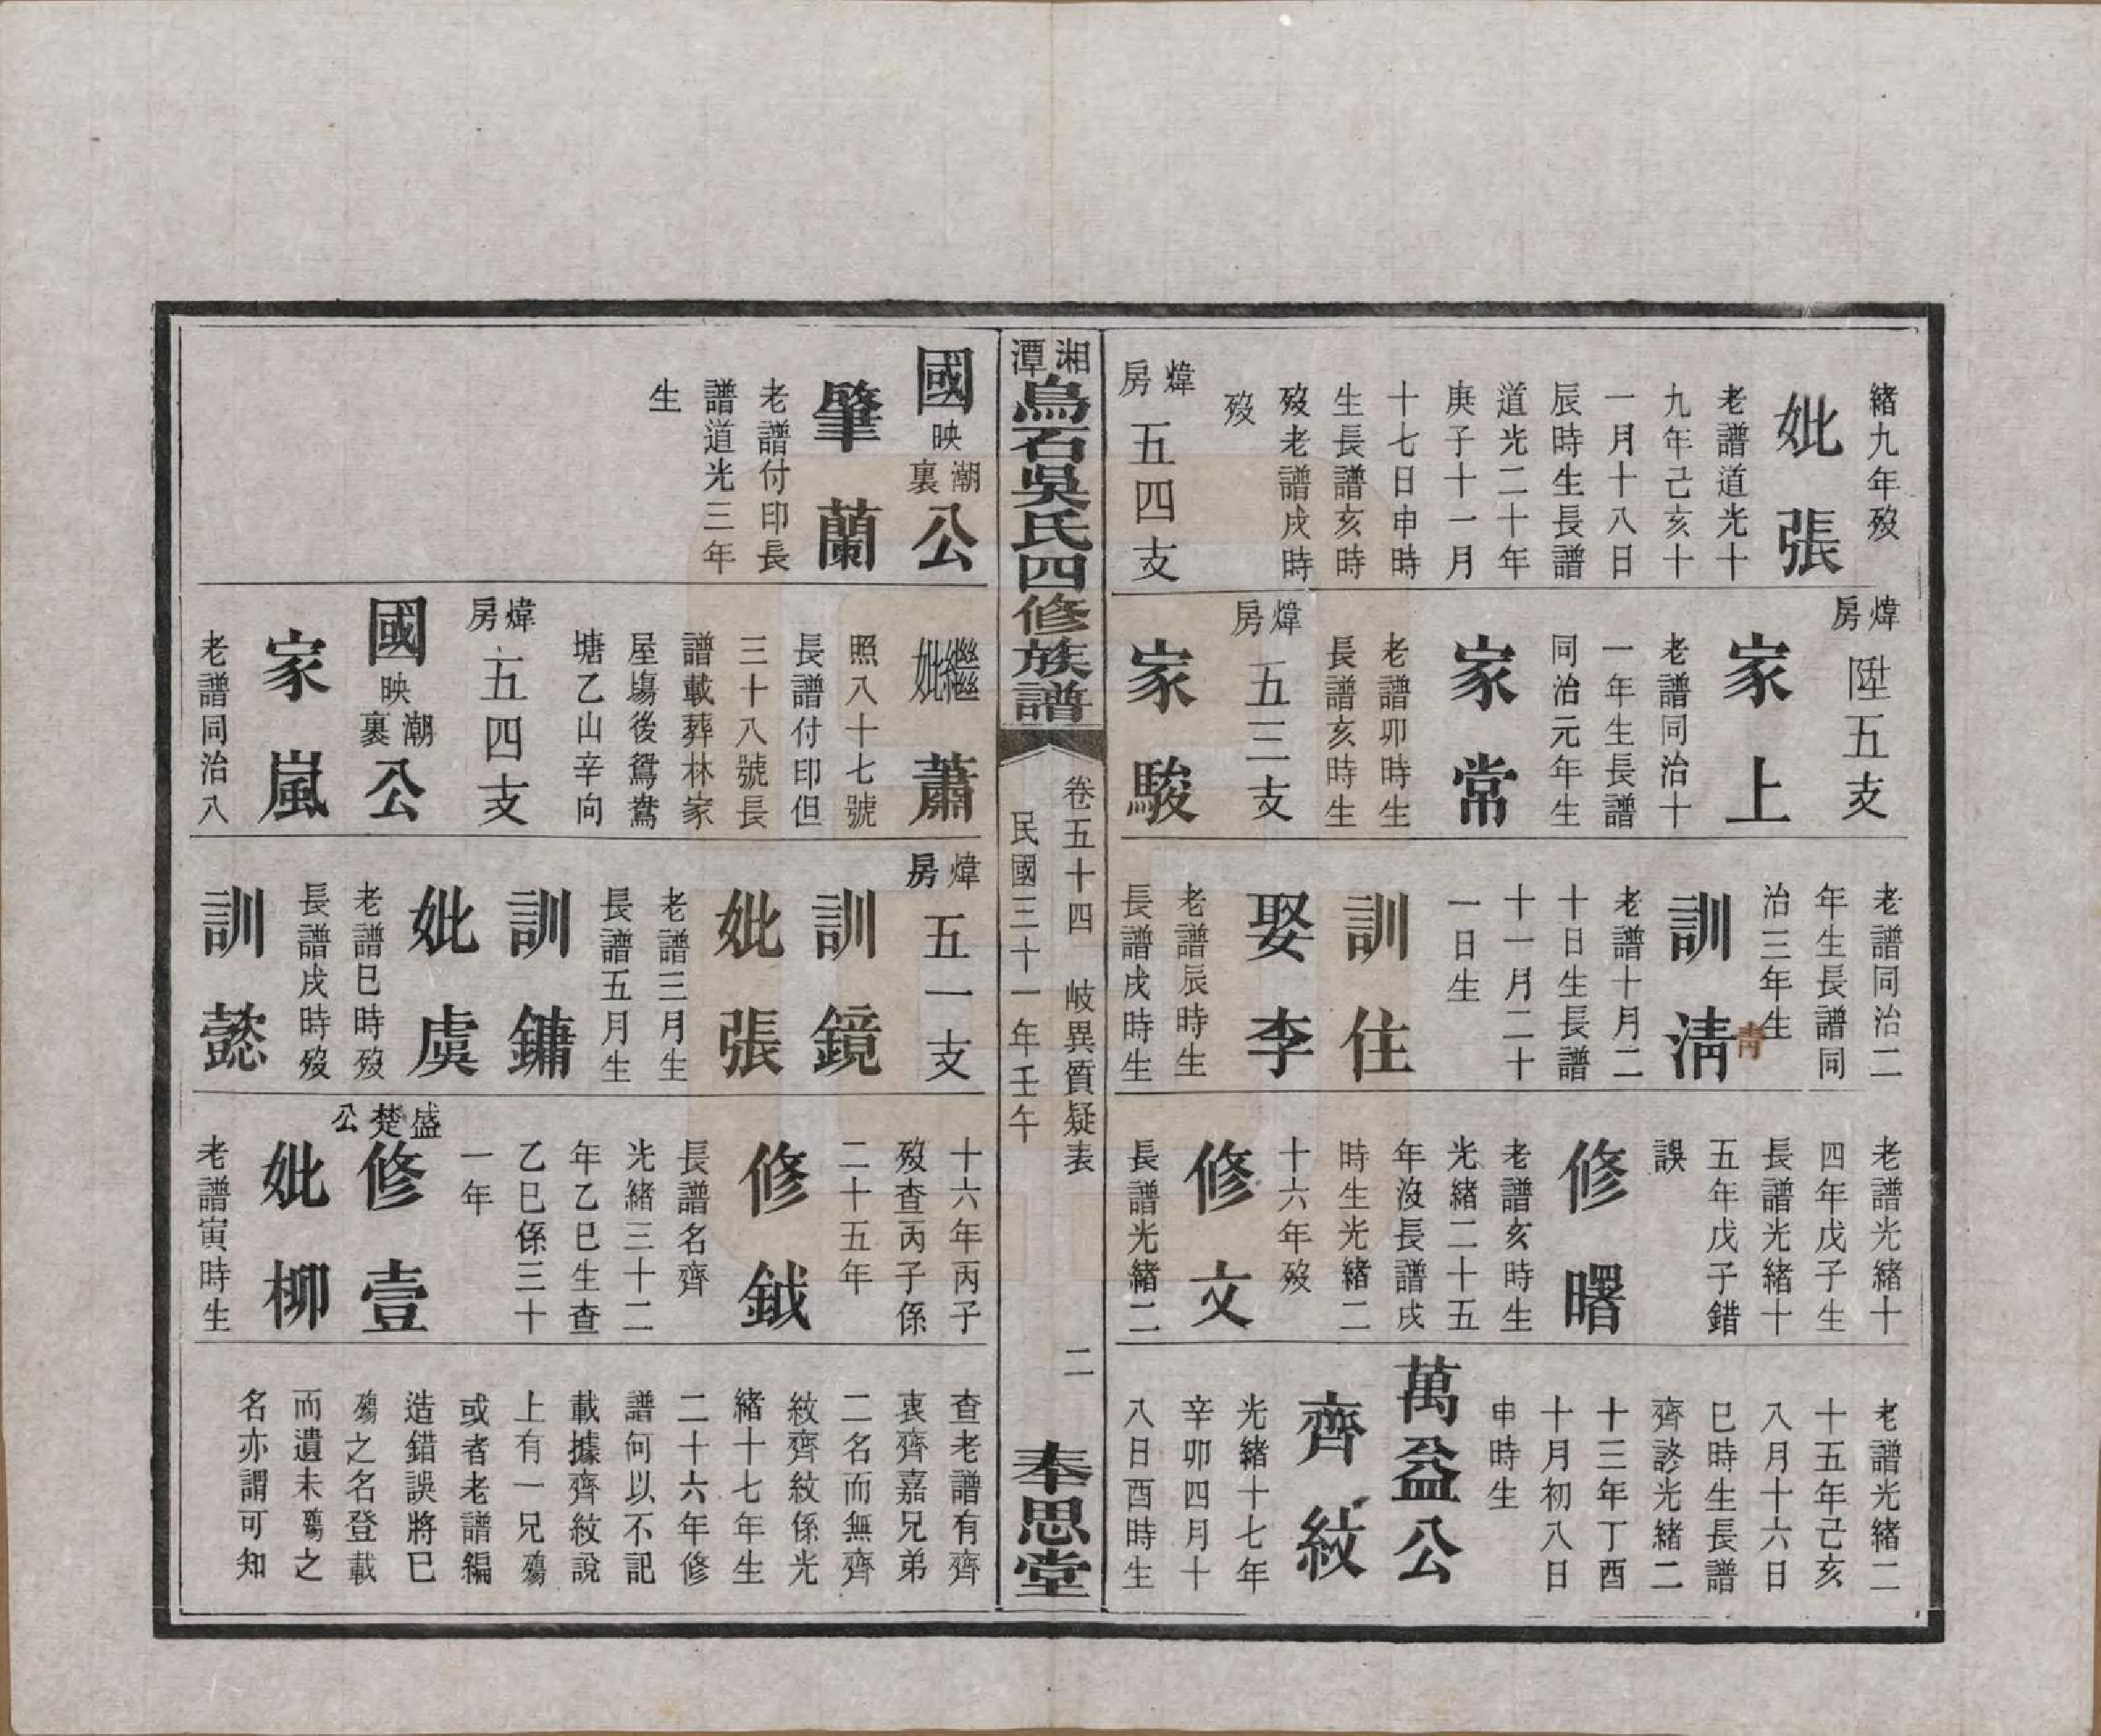 緒九年歿
妣張
老譜道光十
九年己亥十
一月十八日
辰時生長譜
道光二十年
庚子十一月
十七日申時
生長譜亥時
歿老譜戌時
歿
煒房五四支
煒房陞五支
家上
老譜同治十
一年生長譜
同治元年生
家常
老譜卯時生
長譜亥時生
煒房五三支
家駿
老譜同治二
年生長譜同
治三年生
訓清
青
老譜十月二
十日生長譜
十一月二十
一日生
訓住
娶李
老譜辰時生
長譜戌時生
老譜光緒十
四年戊子生
長譜光緒十
五年戊子錯
誤
修曙
老譜亥時生
光緒二十五
年沒長譜戌
時生光緒二
十六年歿
修文
長譜光緒二
老譜光緒二
十五年己亥
八月十六日
巳時生長譜
齊診光緒二
十三年丁酉
十月初八日
申時生
萬益公
齊紋
光緒十七年
辛卯四月十
八日酉時生
湘潭烏石吳氏四修族譜
卷五十四 岐異質疑表 二
民國三十一年壬午
奉思堂
國映潮裏公
肇蘭
老譜付印長
譜道光三年
生
繼妣蕭
照八十七號
長譜付印但
三十八號長
譜載葬林家
屋塲後鴛鴦
塘乙山辛向
煒房五四支
國映潮裏公
家嵐
老譜同治八
煒房五一支
訓鏡
妣張
老譜三月生
長譜五月生
訓鏞
妣虞
老譜巳時歿
長譜戌時歿
訓懿
十六年丙子
歿查丙子係
二十五年
修鉞
長譜名齊
光緒三十二
年乙巳生查
乙巳係三十
一年
盛楚公
修壹
妣柳
老譜寅時生
查老譜有齊
衷齊嘉兄弟
二名而無齊
紋齊紋係光
緒十七年生
二十六年修
譜何以不記
載據齊紋說
上有一兄殤
或者老譜編
造錯誤將已
殤之名登載
而遺未殤之
名亦謂可知